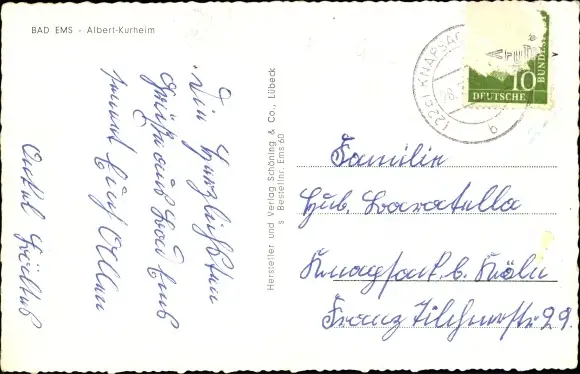 BAD EMS - Albert-Kurheim
Die herzlichsten
Grüße aus Bad Ems
sendet Euch Allen
Onkel
Hersteller und Verlag Schöning & Co., Lübeck
s Bestellnr. Ems 60
(22c) KNAPSACK
b
10
DEUTSCHE
BUNDES
Familie
Hub. Baratella
Knapsack b. Köln
Franz Zilchnerstr. 29.